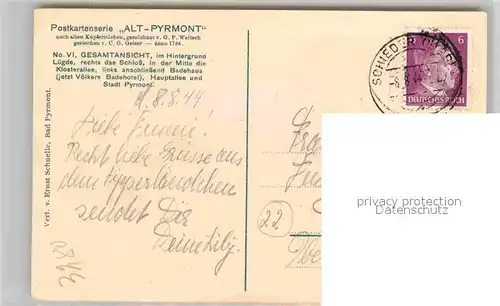 Postkartenserie „ALT-PYRMONT"
nach alten Kupferstichen, gezeichnet v. G. F. Weitsch
gestochen v. C. G. Geiser — anno 1784.
No. VI, GESAMTANSICHT, im Hintergrund
Lügde, rechts das Schloß, in der Mitte die
Klosterallee, links anschließend Badehaus
(jetzt Völkers Badehotel), Hauptallee und
Stadt Pyrmont.
Verl. v. Ernst Schnelle, Bad Pyrmont.
8.8.44
Liebe
Recht liebe Grüsse aus
dem Lipperländchen
sendet Dir
Deine Lilj.
6
DEUTSCHES REICH
SCHIEDER
22
privacy protection
Datenschutz